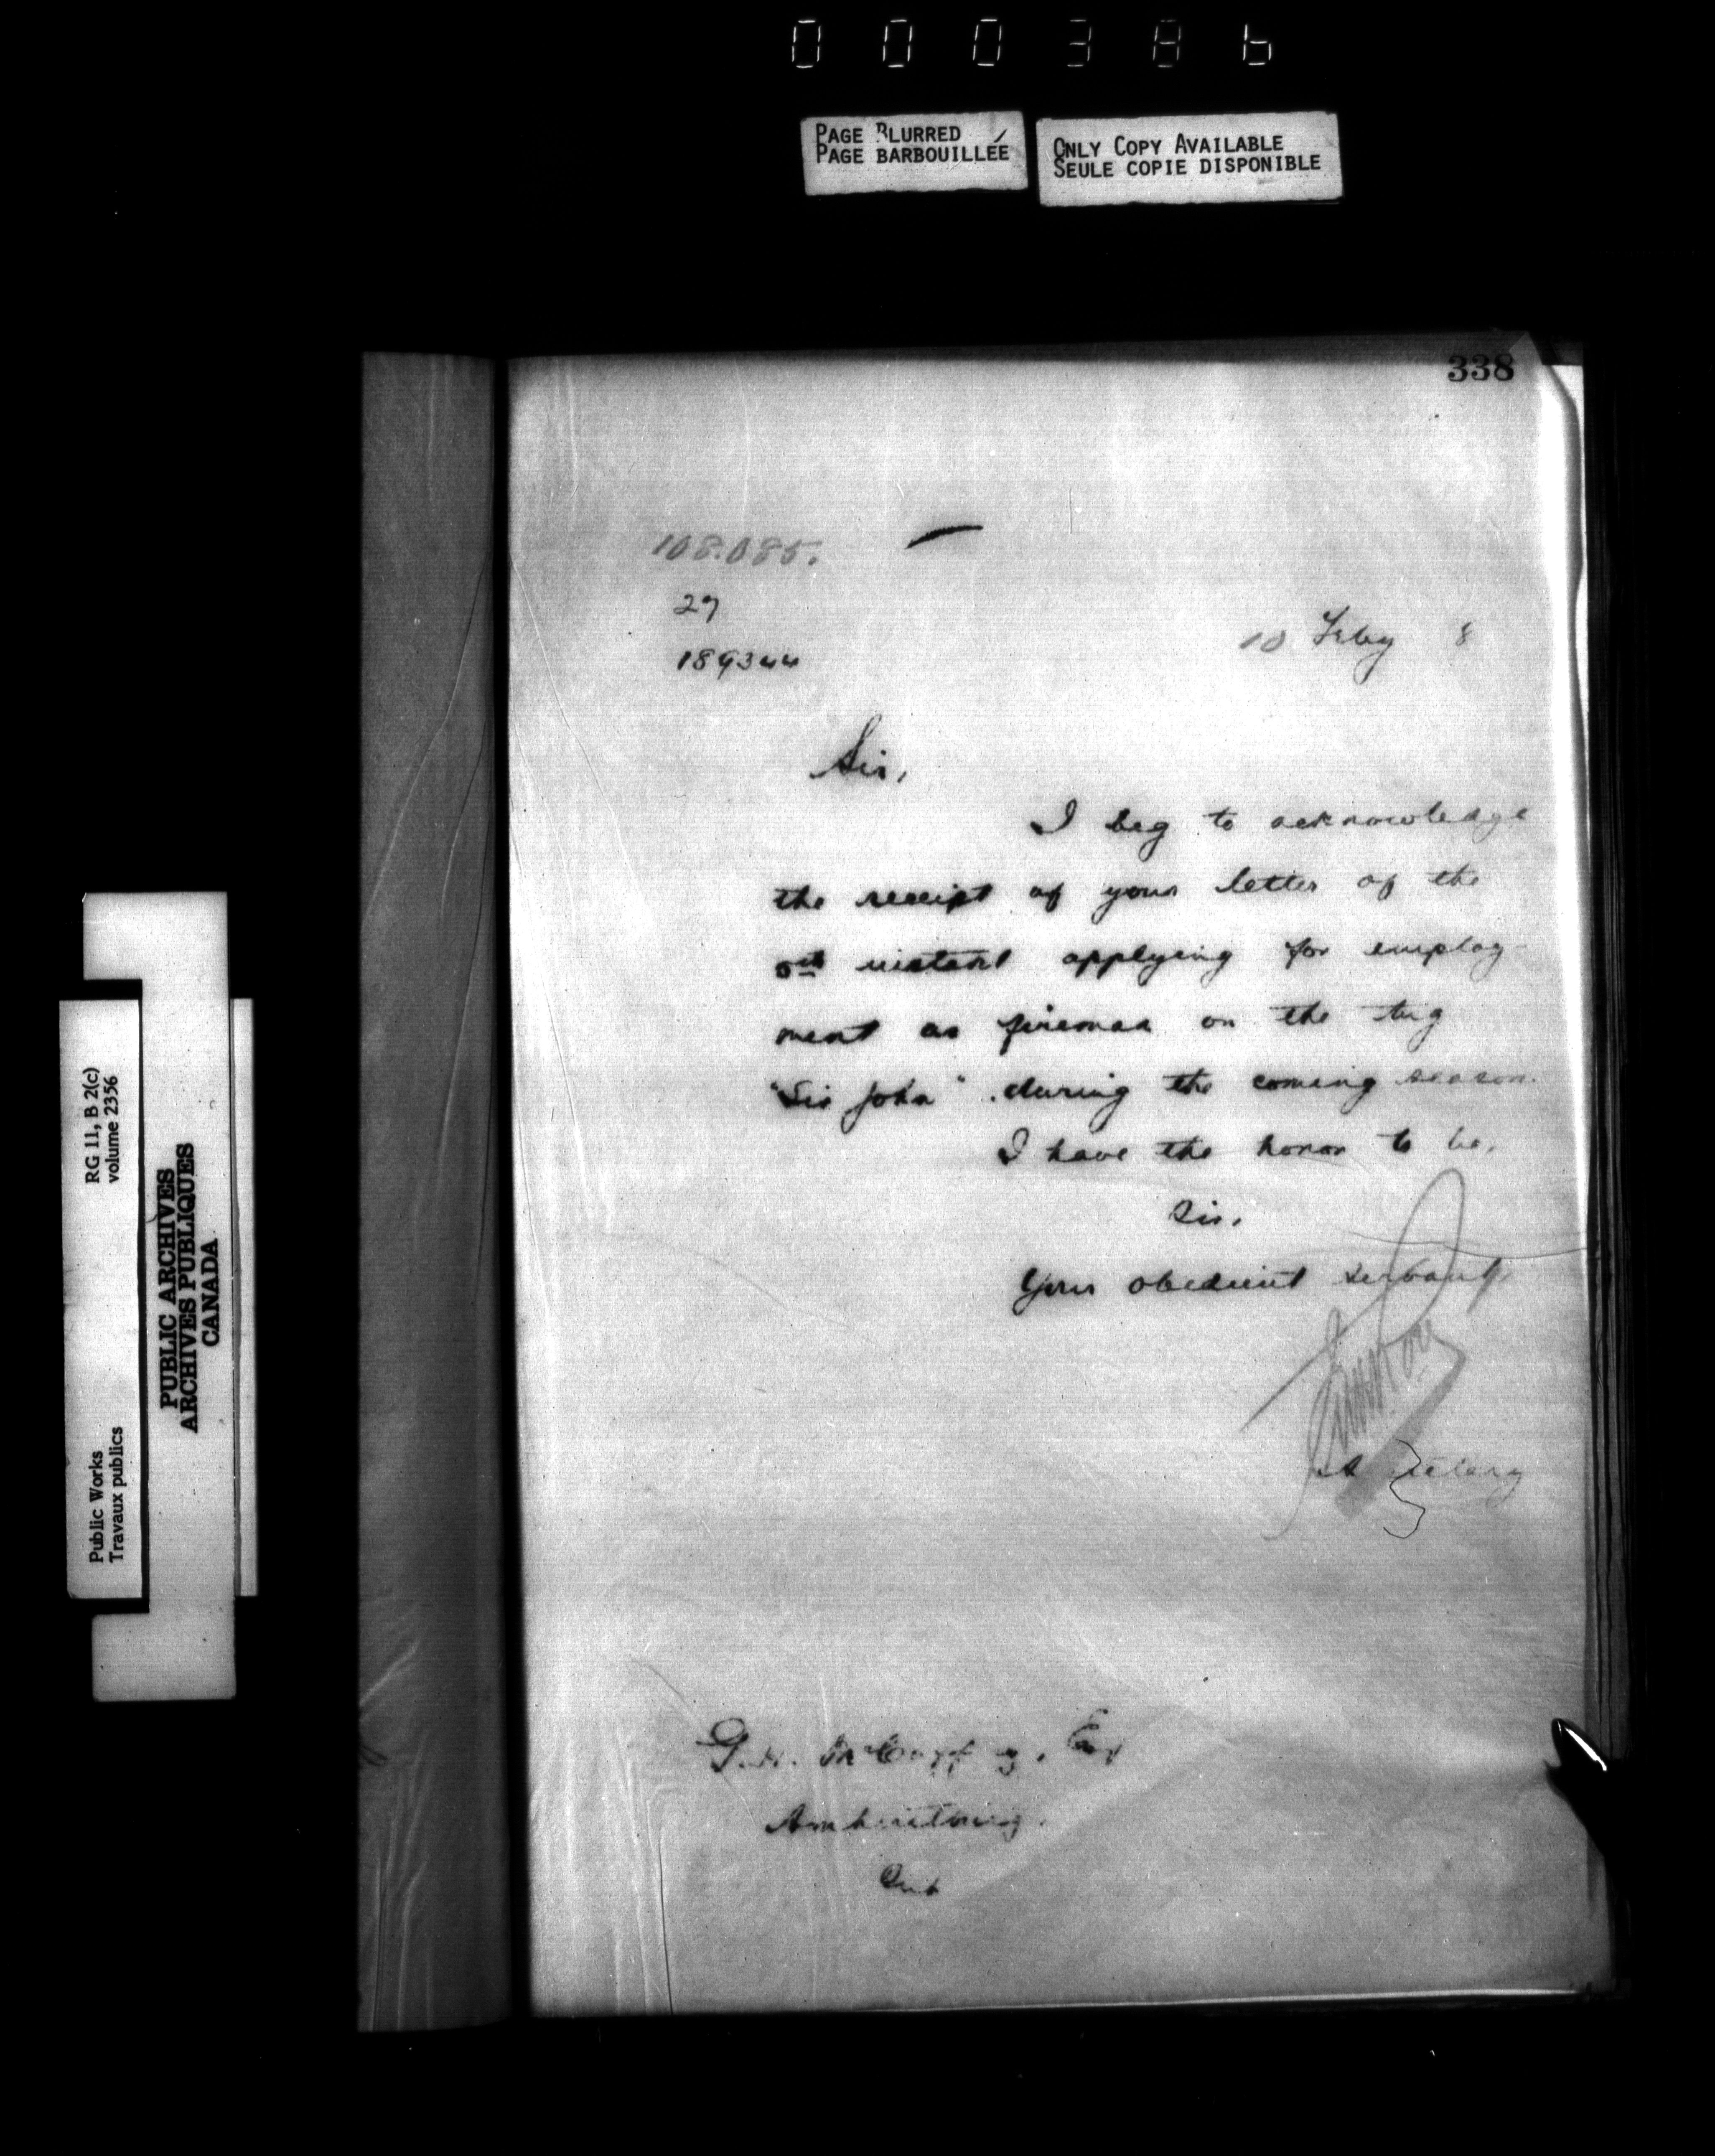 000386
PAGE BLURRED
PAGE BARBOUILLÉE
ONLY COPY AVAILABLE
SEULE COPIE DISPONIBLE
338
108.085.
27
189344
10 Feby 8
Sir,
I beg to acknowledge
the receipt of your letter of the
instant applying for employ-
ment as fireman on the tug
"Sir John" during the coming season.
I have the honor to be,
Sir,
Your obedient servant,
G. H.
Esq
Amherstburg.
Ont
RG 11, B 2(c)
volume 2356
PUBLIC ARCHIVES
ARCHIVES PUBLIQUES
CANADA
Public Works
Travaux publics